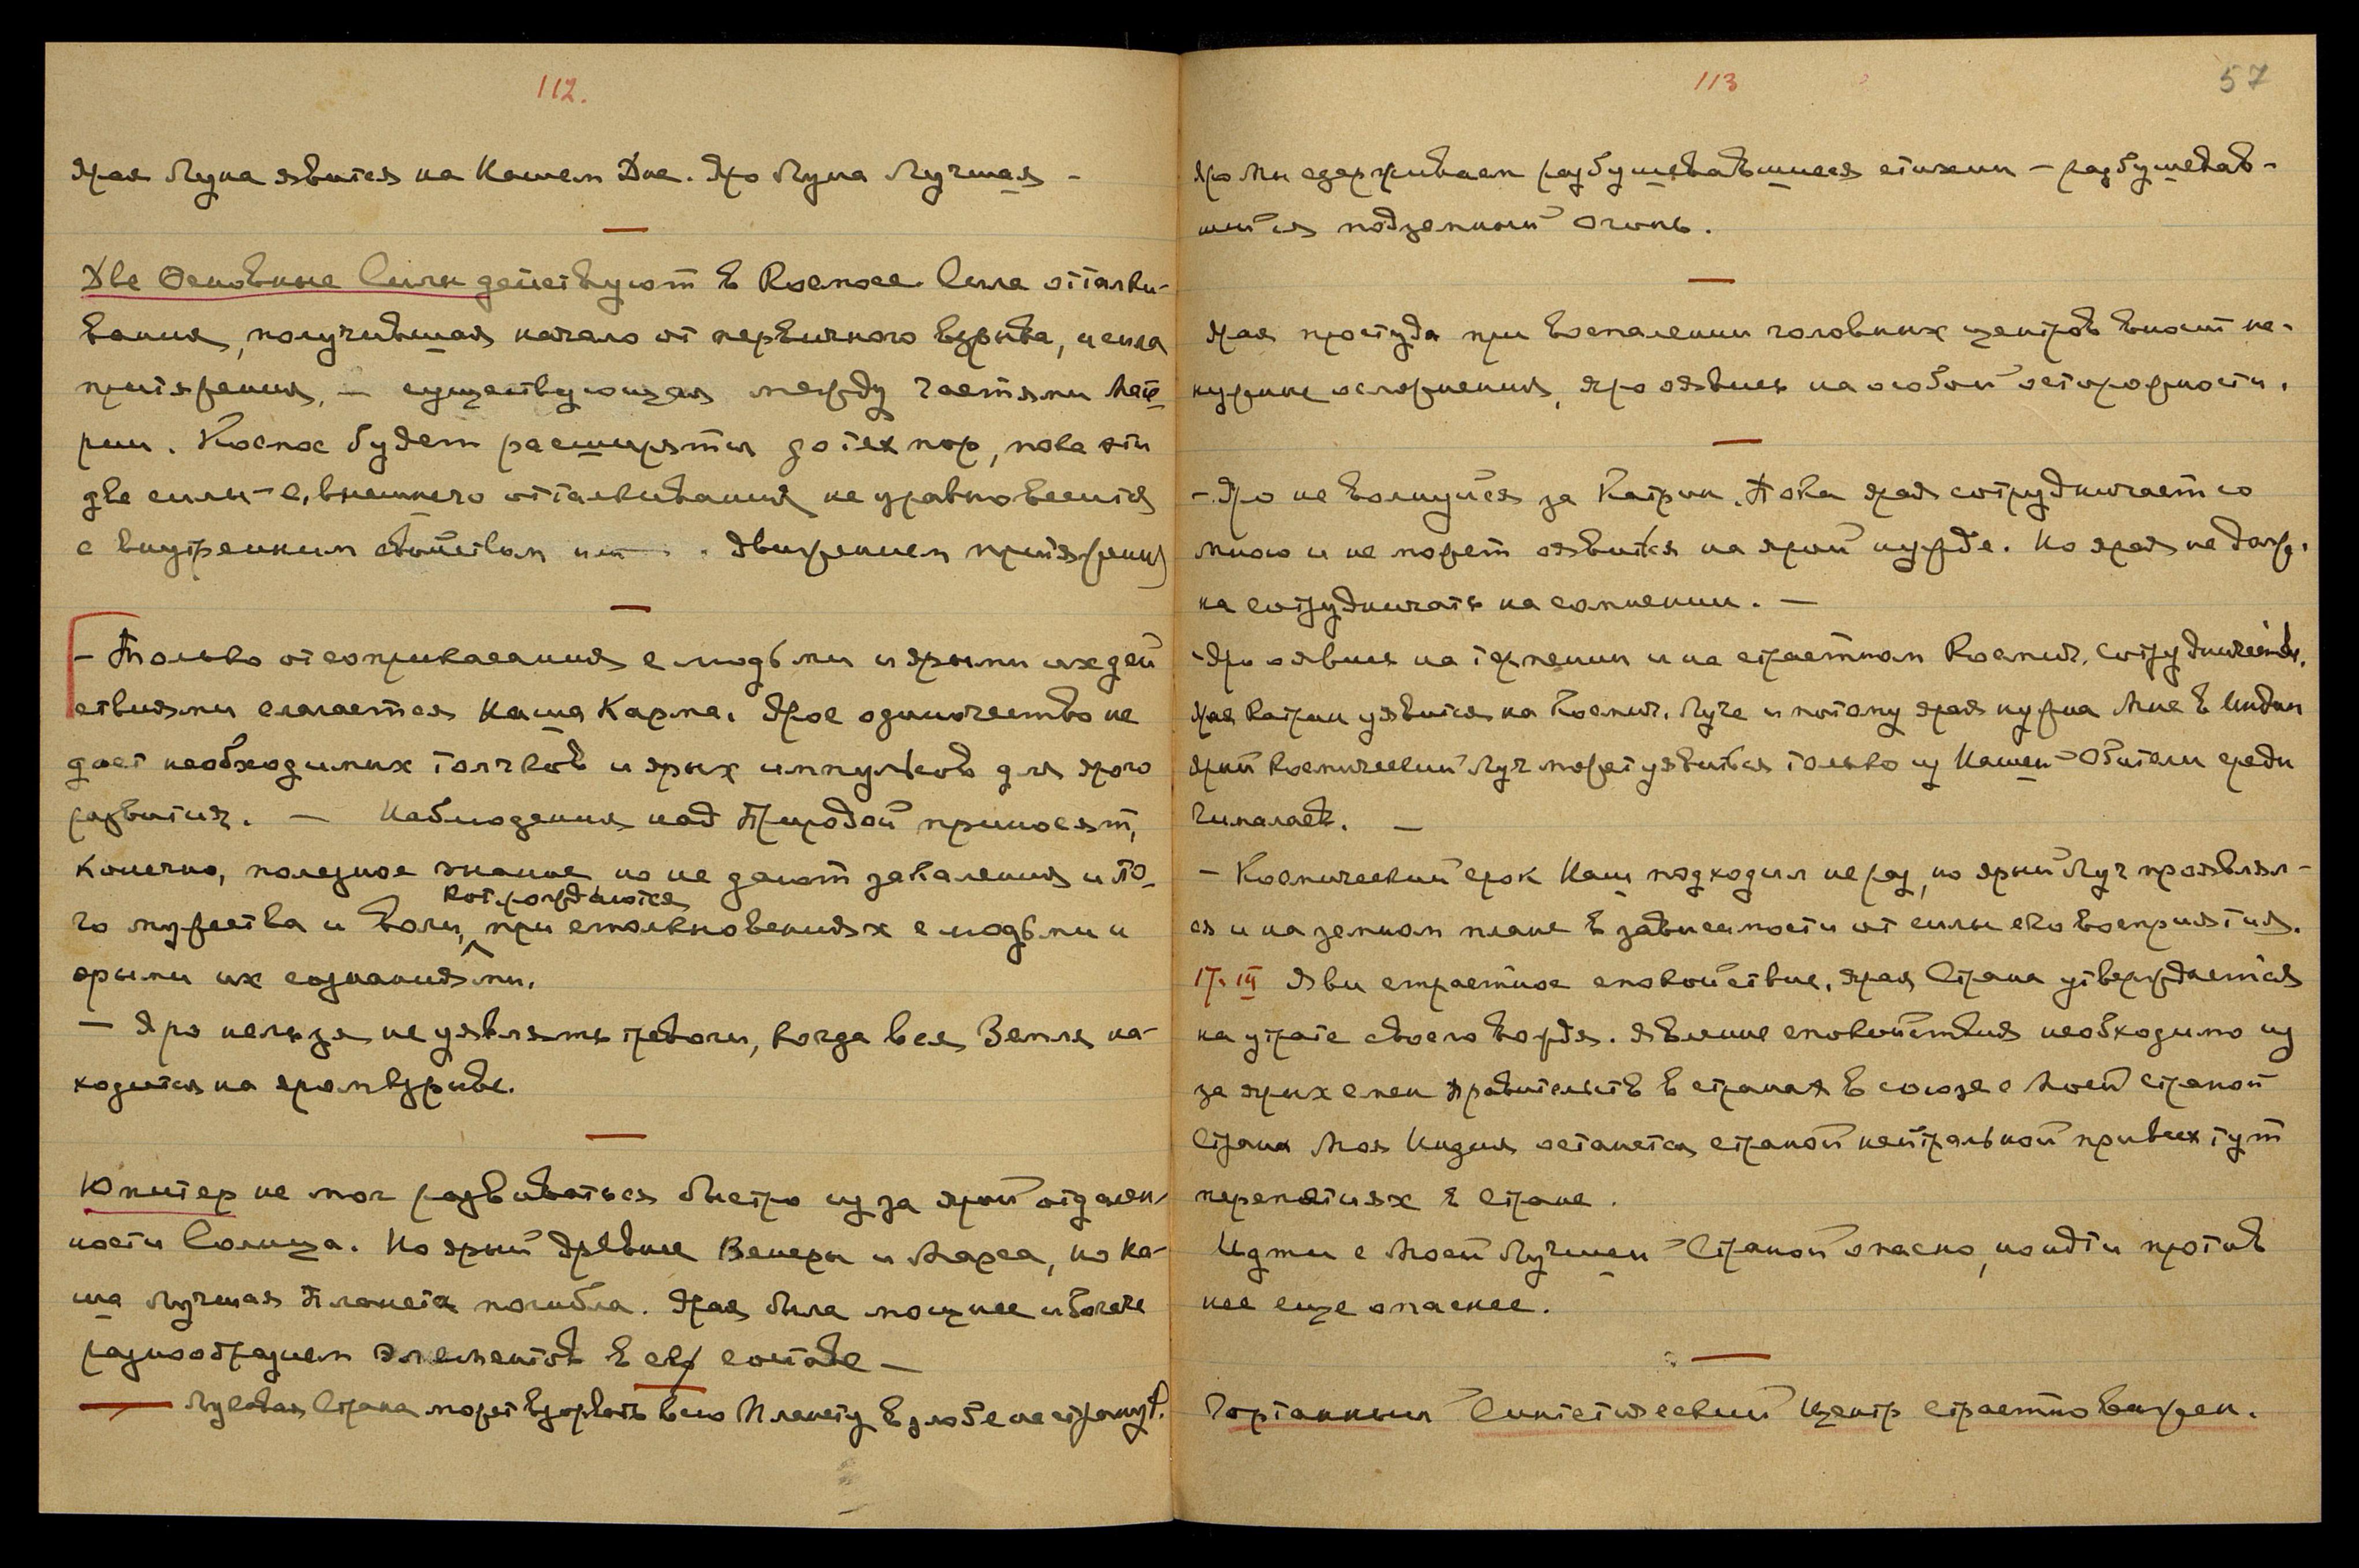 112.
Ярая Луна явится на Нашем Дне. Яро Луна Лучшая –
Две Основные Силы действуют в Космосе. Сила отталки-
вания, получившая начало от первичного взрыва, и сила
притяжения, – существующая между частями Мате
рии. Космос будет расширяться до тех пор, пока эти
две силы – с. внешнего отталкивания не уравновесится
с внутренним свойством движением притяжения
– Только от соприкасания с людьми и ярыми их дей
ствиями слагается Наша Карма. Ярое одиночество не
дает необходимых толчков и ярых импульсов для ярого
развития. – Наблюдения над Природой приносят,
конечно, полезное знание но не дают закаления и то-
кот. рождаются
го мужества и воли, при столкновениях с людьми и
ярыми их сознаниями.
– Яро нельзя не уявлять тревоги, когда вся Земля на-
ходится на яром взрыве.
Юпитер не мог развиваться быстро из за ярой отдален-
ности Солнца. Но ярый древнее Венеры и Марса, но На-
ша Лучшая Планета погибла. Ярая была мощнее и богаче
разнообразием элементов в её составе –
Страна может взорвать всю Планету в злобе
113
57
Яро Мы сдерживаем разбушевавшиеся стихии – разбушевав-
шийся подземный огонь.
Ярая простуда при воспалении головных центров вносит не-
нужные осложнения, яро явись на особой осторожности.
– Яро не волнуйся за Катрин. Пока ярая сотрудничает со
мною и не может оявиться на ярой нужде. Но ярая не долж-
на сотрудничать на сомнении. –
– Яро оявись на терпении и на страстном Космич. сотрудничестве.
Ярая Катрин уявится на Космич. Луче и потому ярая нужна Мне в Индии
Ярый космический Луч может уявиться только из Нашей Обители среди
Гималаев. –
– Космический срок Наш подходил не раз, но ярый Луч проявлял-
ся и на земном плане в зависимости от силы его восприятия.
17. III Яви страстное спокойствие. Ярая Страна утверждается
на утрате своего вождя. Явление спокойствия необходимо из
за ярых смен Правительств в странах в союзе с Моей страной
Страна Моя Индия останется страной нейтральной при всех тут
перепетиях в Стране.
Идти с Моей Лучшей Страной опасно, но идти против
нее еще опаснее.
Гортанный Синтетический Центр страстно важен.